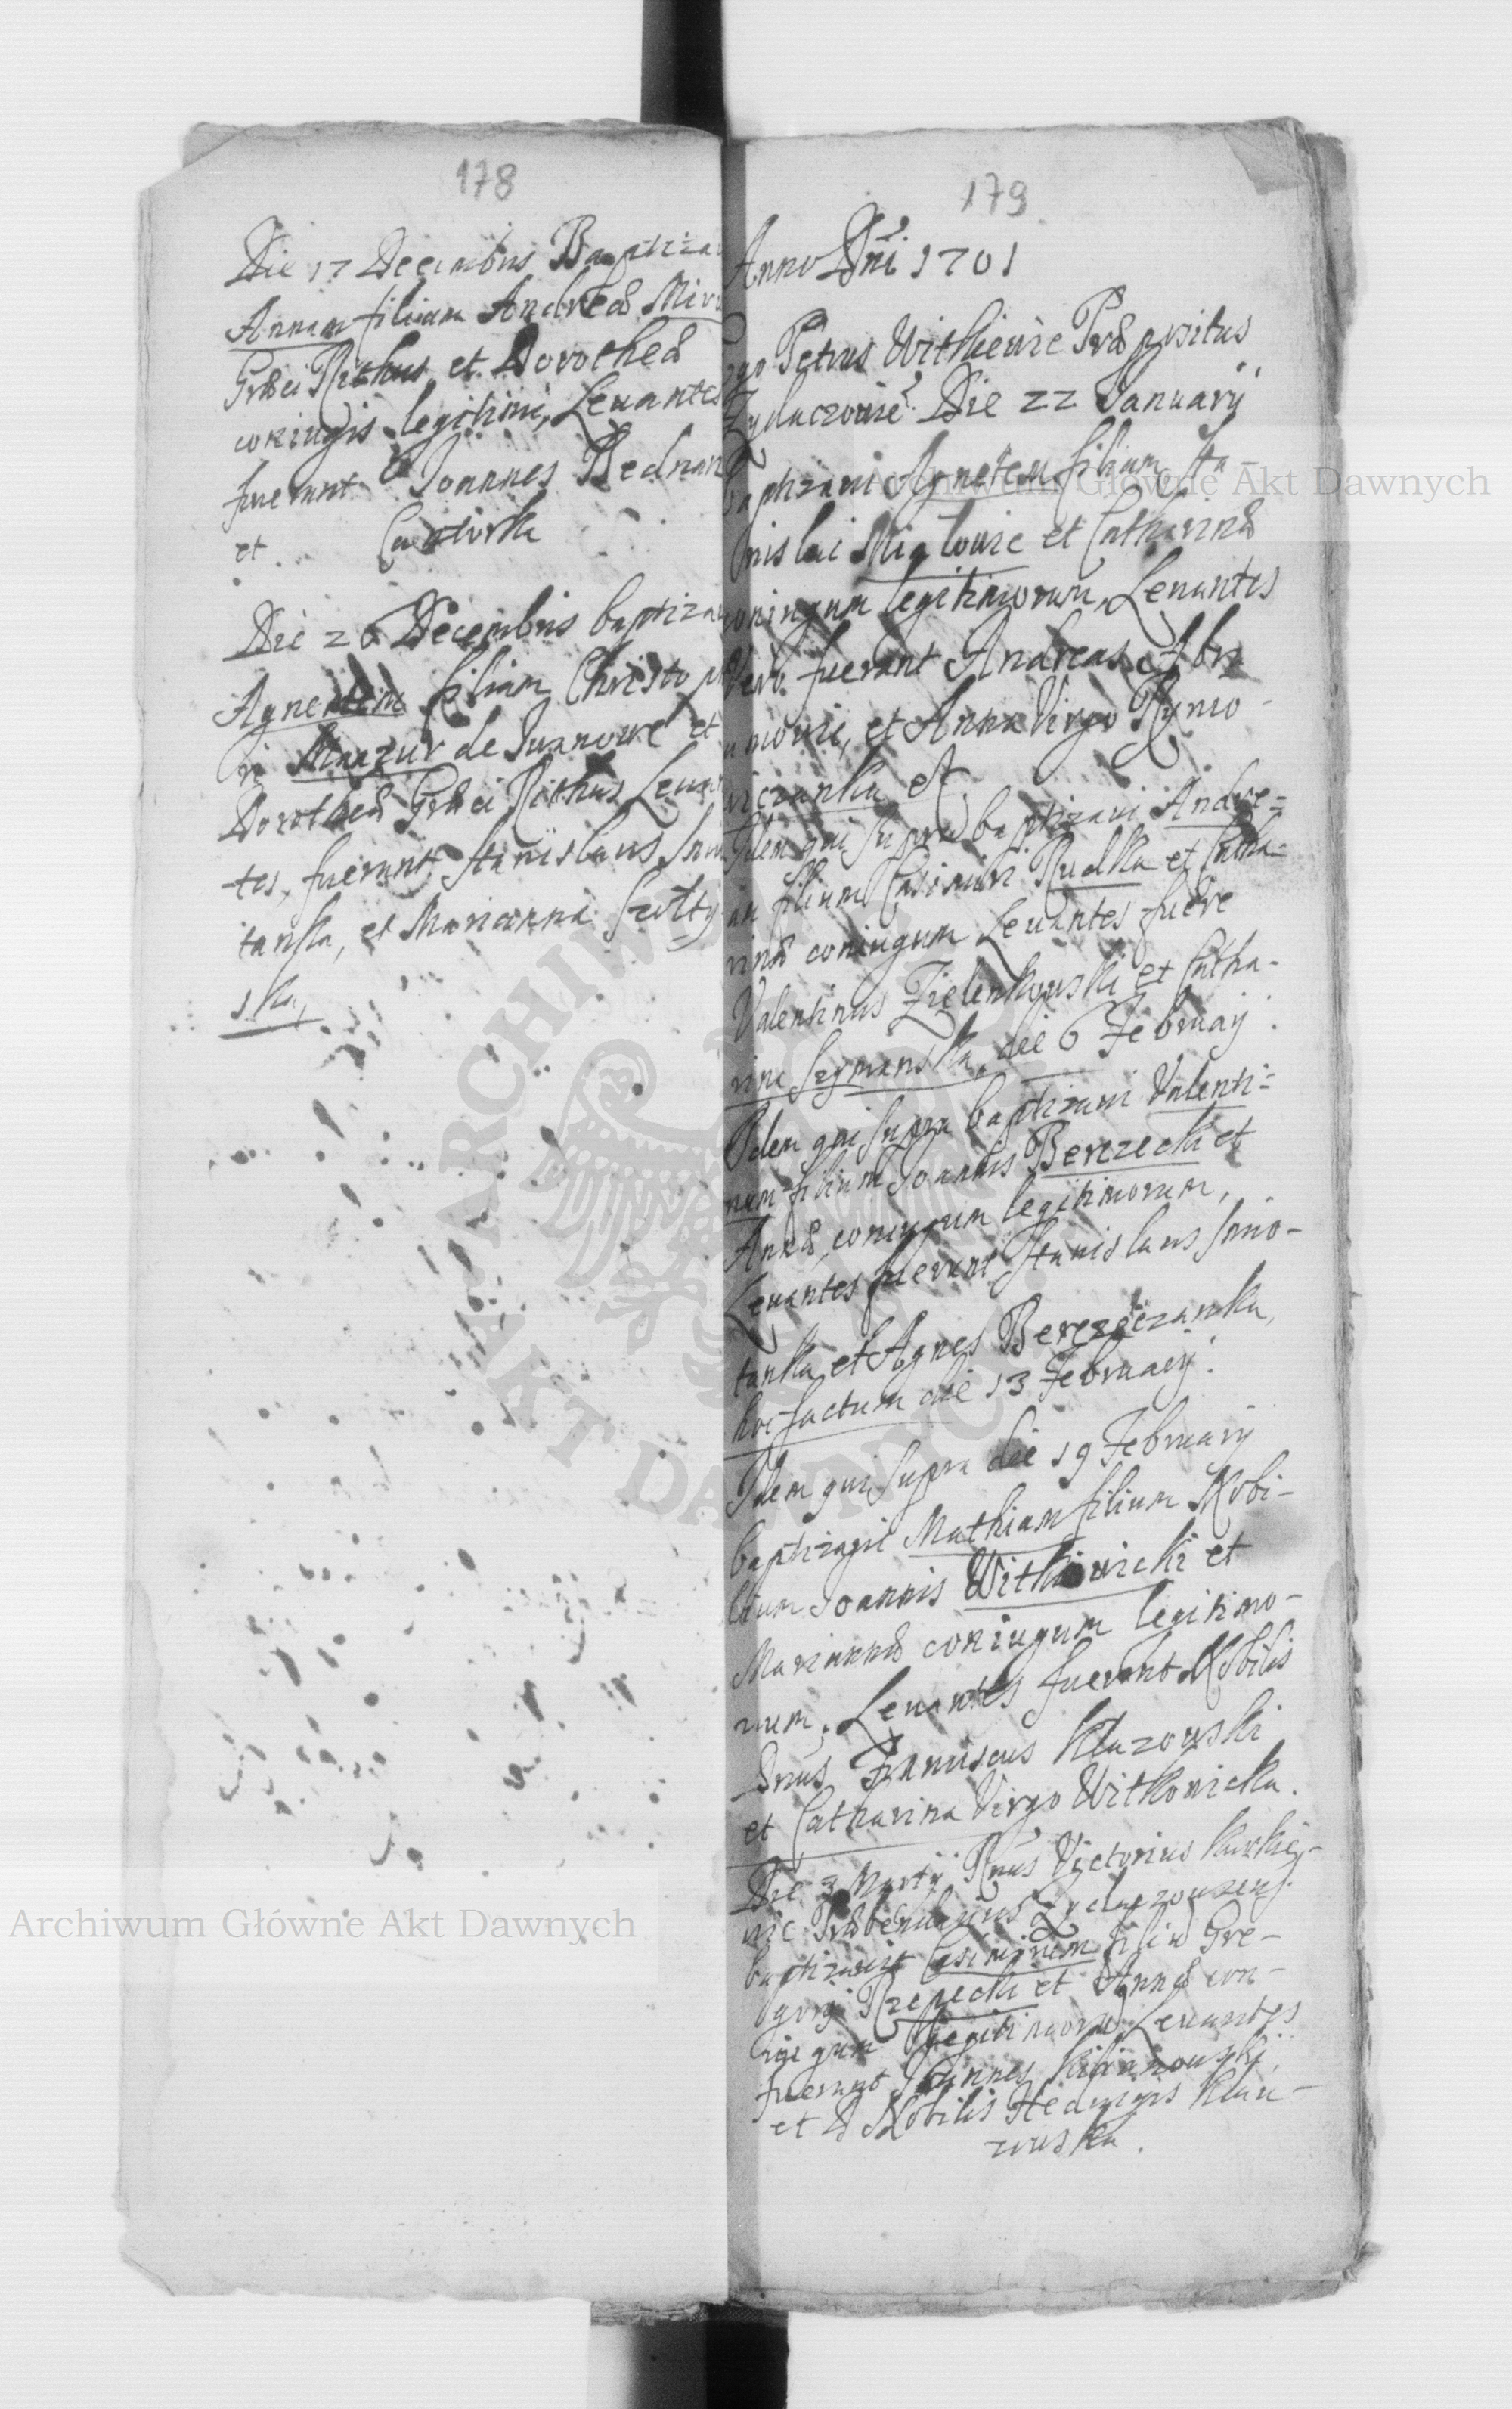 178
Die 17 Decembris Baptiza
Annam filiam Andreæ
Græci Rithus et Dorotheæ
coniugis legitimi, Levantes
fuerunt Joannes
et Cantorka
Die 26 Decembris baptiza
Agnetem filiam Christop
ri Mazur de Iwanowce et
Dorotheæ Græci Rithus Levan
tes, fuerunt Stanislaus
tanka, et Marianna Szolty
ska,
179
Anno Dni 1701
Ego Petrus Witkiewic Præpositus
Zydaczovie. Die 22 January
baptizavi Agnetem filiam Sta-
nislai Miglowic et Catharinæ
coniugum legitimorum, Levantes
vero fuerunt Andreas Abra
mowic, et Anna Virgo Rymo-
wiczanka
Idem qui supra baptizavi Andre=
am filium Casimiri Rudka et Catha-
rinæ coniugum Levantes fuere
Valentinus Zielenkowski et Catha-
rina Szymanska, die 6 February.
Idem qui supra baptizavi Valenti=
num filium Joannis Berezecki et
Annæ coniugum legitimorum,
Levantes fuerunt Stanislaus Smo-
tanka et Agnes Berezeczanka,
hoc factum die 13 February.
Idem qui supra die 19 February
baptizavi Mathiam filium Nobi-
lium Joannis Witkowicki et
Mariannæ coniugum legitimo-
rum, Levantes fuerunt Nobilis
Dnus Franciscus Kluzowski
et Catharina Virgo Witkowicka.
Die 3 Marty Rnus Victorius
baptizavit Casimirum filiu Gre-
gory Rzepecki et Annæ con-
iugum legitimoru Levantes
fuerunt Joannes
et Nobilis Hedvigis Klu-
zowska.
Archiwum Główne Akt Dawnych
Archiwum Główne Akt Dawnych
ARCHIWUM
AKT DAWNYCH